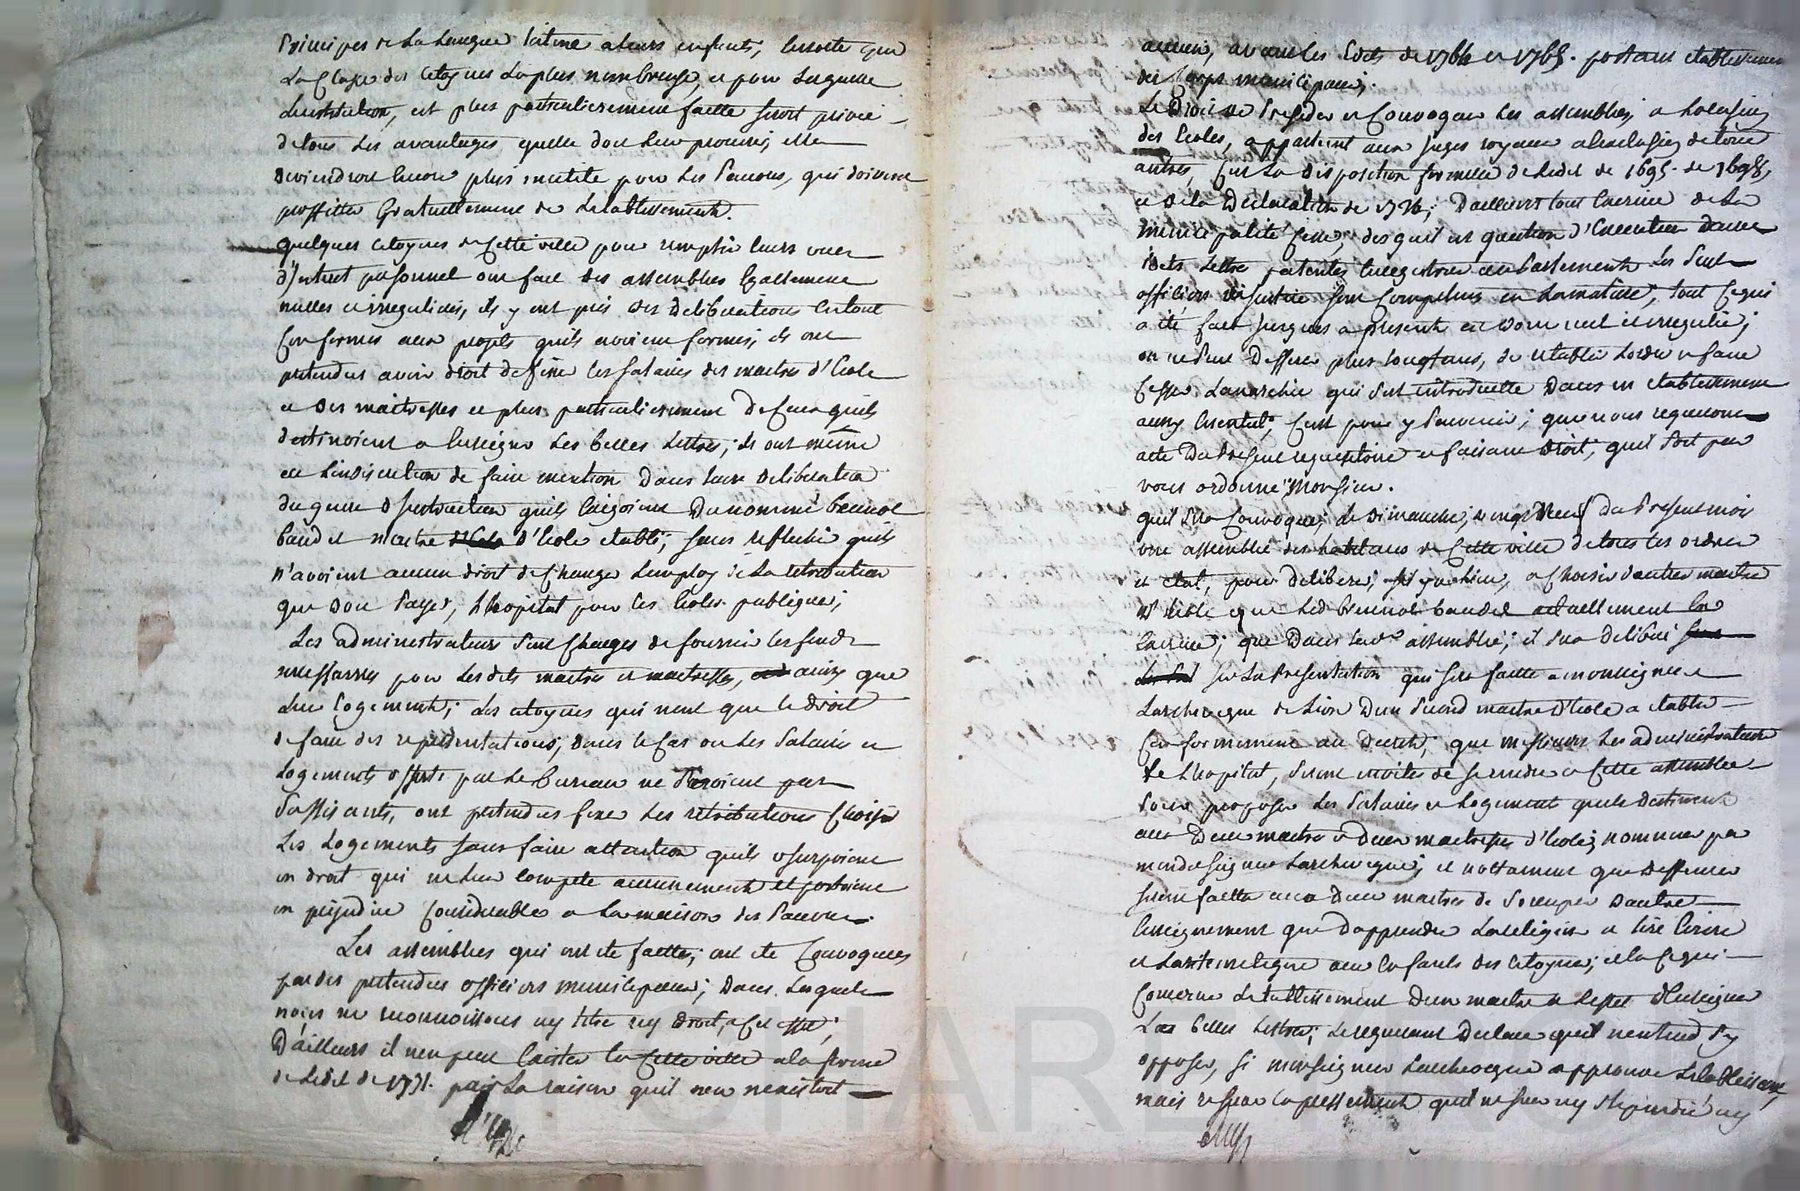 Principes de La Langue latine a leurs enfants, Ensorte que
La Classe des Citoyens La plus nombreuse, et pour Laquelle
Linstitution, est plus particulierement faitte seroit privée
de tous Les avantages quelle doit Leur procurer, elle
deviendroit Encore plus inutile pour Les Pauvres, qui doivent
proffitter Gratuittement de Letablissement.
quelques citoyens de Cette ville pour remplir leurs vues
d'Interet personnel ont fait des assemblées Egallement
nulles et irregulieres, ils y ont pris des deliberations en tout
Conformes aux projets quils avoient formés, ils ont
pretendus avoir droit de fixer les Salaires des maitres d'Ecole
et des maitresses et plus particulierement de Ceux quils
destinoient a Enseigner Les belles Lettres; ils ont même
eu Lindiscretion de faire mention dans leur deliberation
du genre d'Instruction quils Exigeoient du nommé bennoit
baudet maitre d'Ecole etabli; sans reflechir quils
n'avoient aucun droit de Changer Lemploy de La retribution
que doit Payer, L'hopital pour les Ecoles publiques;
Les administrateurs sont Chargés de fournir les fonds
necessaires pour Lesdits maitres et maitresses, ainsy que
Leur Logement; Les citoyens qui n'ont que le droit
de faire des representations, dans le Cas ou Les Salaires et
Logements offerts par Le bureau ne seroient pas
Suffisants, ont pretendus fixer Les retributions Choisir
Les Logements sans faire attention quils usurpoient
un droit qui ne Leur Compete aucunement et portoient
un prejudice Considerable a La maison des Pauvres.
Les assemblées qui ont été faittes, ont été Convoquées
par des pretendus officiers municipaux; dans Lesquels
nous ne reconnoissons ny titre ny droit, a cet effet;
D'ailleurs il n'en peut Exister en Cette ville a la forme
de Ledit de 1771. par La raison quil n'en n'existoit
aucun, avant les Edits de 1764 et 1765. portant etablissement
des Corps municipaux;
Le Droit de Presider et Convoquer Les assemblées, a Loccasion
des Ecoles, appartient aux juges royaux a Lexclusion de tous
autres, C'est La disposition formelle de Ledit de 1695. de 1698,
et de La Declaration de 1726; D'ailleurs tout Exercice de La
municipalité Cesse, des quil est question d'Execution dans
Edits Lettres patentes Enregistrées au Parlement Les Seuls
officiers de justice sont Competents en La matiere; tout Ce qui
a été fait jusques a present est donc nul et irregulier;
on ne Peut Differer plus Longtems, de retablir Lordre et faire
Cesser Lanarchie qui s'est introduitte Dans un etablissement
aussy Essentiel, C'est pour y Parvenir; que nous requerons
acte Du Present requisitoire et faisant droit, quil soit par
vous ordonné Monsieur.
quil Sera Convoqué, Le dimanche, vingt Neuf du Present mois
une assemblée des habitans de Cette ville de tous les ordres
et etat, pour deliberer, s'il y a Lieu, a Choisir d'autre maitre
d'Ecole que Led. benoit baudet actuellement En
Exercice; que Dans lad.e assemblée, il sera deliberé
sur La Presentation qui sera faitte a monseigneur
Larcheveque de Lion d'un Second maitre d'Ecole a etablir
Conformement au Decret, que messieurs Les administrateurs
de L'hopital, seront invités de se rendre a Cette assemblée
Pour proposer Les Salaires et Logement quils destinent
aux Deux maitres et Deux maitresses d'Ecole, nommées par
mondeseigneur Larcheveque; et nottament que deffenses
seront faittes aux Deux maitres de Soccuper Dautre
Enseignement que d'apprendre La religion a lire Ecrire
et Larithmetique aux Enfants des Citoyens; et a Ce qui
Concerne Letablissement d'un maitre a Leffet d'Enseigner
Les belles Lettres; Le requerant Declare quil n'entend S'y
opposer, Si monseigneur Larcheveque approuve Letablissement,
mais expressement quil ne sera ny Stipendié ny